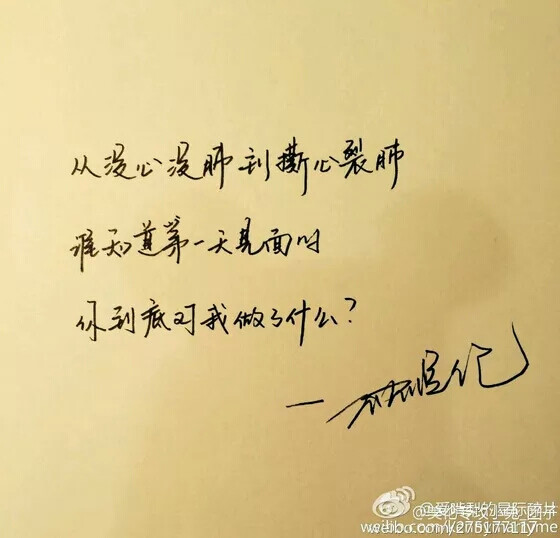 从没心没肺到撕心裂肺
谁知道第一天见面时
你到底对我做了什么?